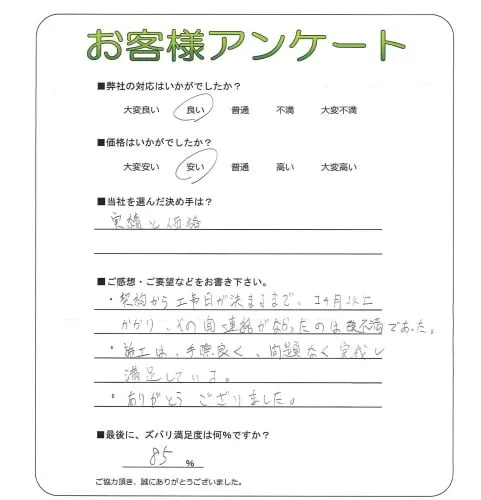 お客様アンケート
■弊社の対応はいかがでしたか?
大変良い 良い 普通 不満 大変不満
■価格はいかがでしたか?
大変安い 安い 普通 高い 大変高い
■当社を選んだ決め手は?
実績と価格
■ご感想・ご要望などをお書き下さい。
・契約から工事日が決まるまで、1ヶ月以上
かかり、その間連絡がなかったのは不満であった。
・施工は、手際良く、問題なく完成し
満足している。
・ありがとうございました。
■最後に、ズバリ満足度は何%ですか?
85 %
ご協力頂き、誠にありがとうございました。